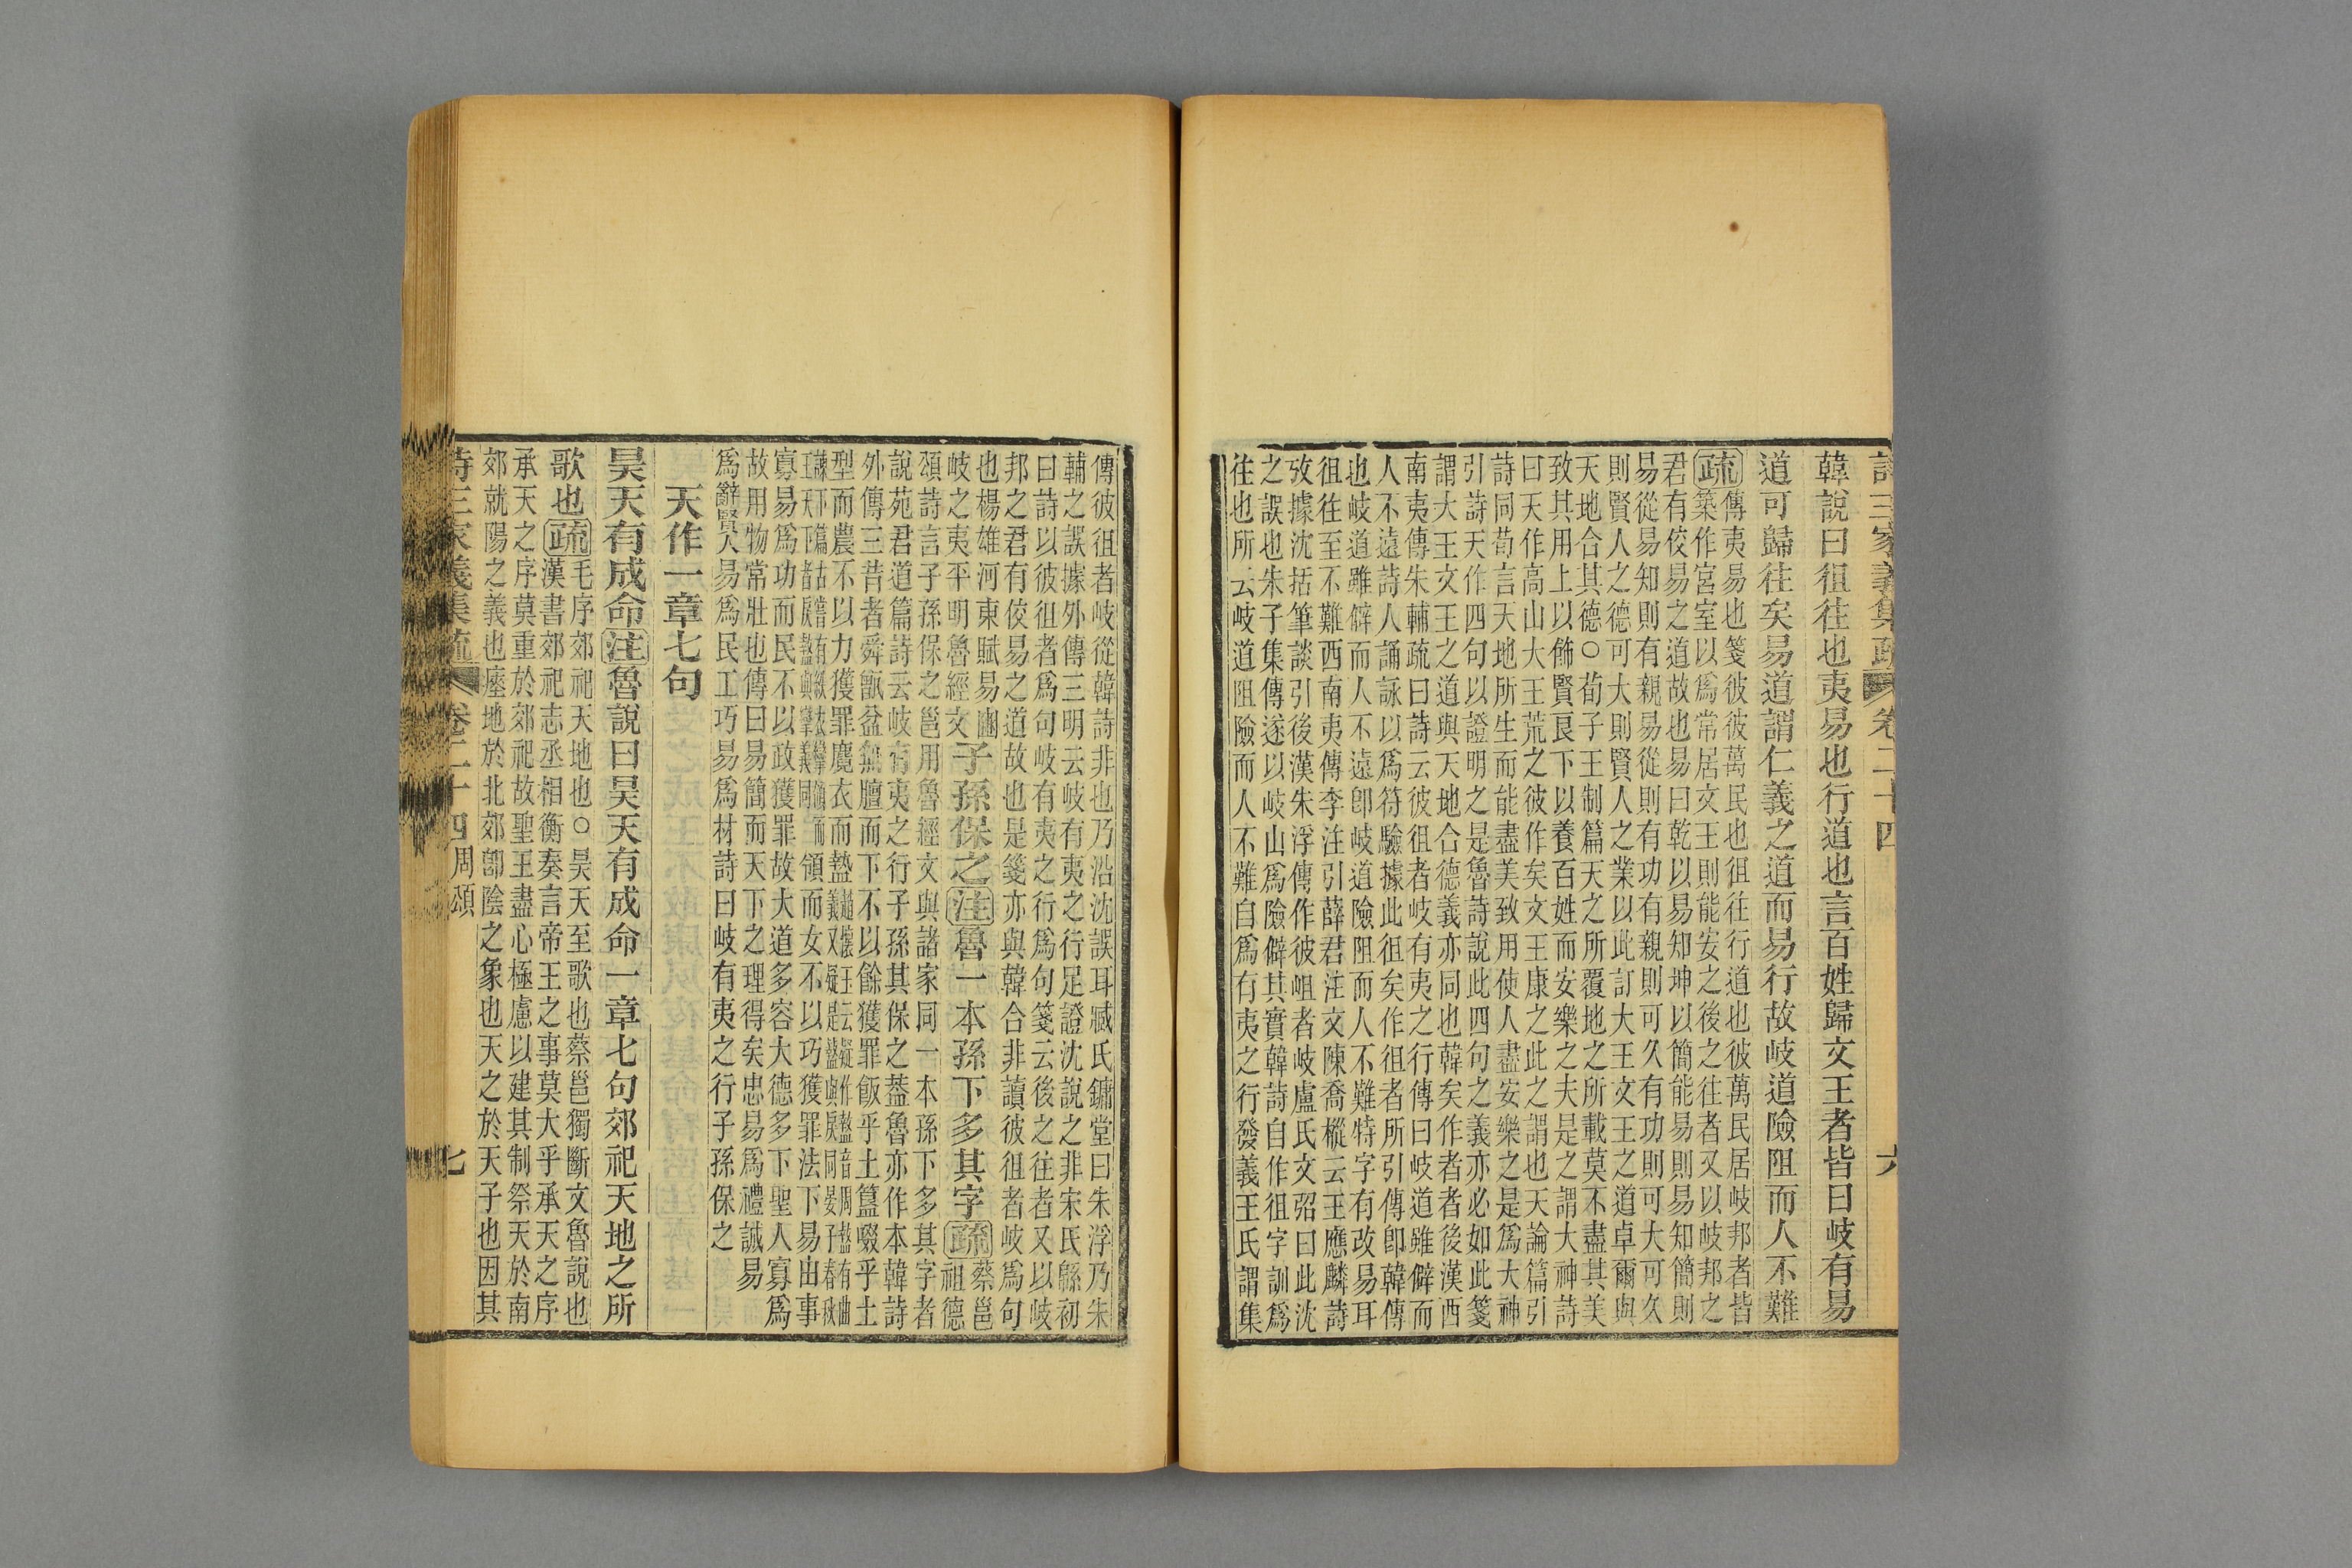 詩三家義集疏 卷二十四 六
韓說曰徂往也夷易也行道也言百姓歸文王者皆曰岐有易
道可歸往矣易道謂仁義之道而易行故岐道險阻而人不難
疏傳夷易也箋彼彼萬民也徂往行道也彼萬民居岐邦者皆
築作宮室以爲常居文王則能安之後之往者又以岐邦之
君有佼易之道故也易曰乾以易知坤以簡能易則易知簡則
易從易知則有親易從則有功有親則可久有功則可大可久
則賢人之德可大則賢人之業以此訂大王文王之道卓爾與
天地合其德○荀子王制篇天之所覆地之所載莫不盡其美
致其用上以飾賢良下以養百姓而安樂之夫是之謂大神詩
曰天作高山大王荒之彼作矣文王康之此之謂也天論篇引
詩同荀言天地所生而能盡美致用使人盡安樂之是爲大神
引詩天作四句以證明之是魯詩說此四句之義亦必如此箋
謂大王文王之道與天地合德義亦同也韓矣作者者後漢西
南夷傳朱輔疏曰詩云彼徂者岐有夷之行傳曰岐道雖僻而
人不遠詩人誦詠以爲符驗據此徂矣作徂者所引傳卽韓傳
也岐道雖僻而人不遠卽岐道險阻而人不難特字有改易耳
徂往至不難西南夷傳李注引薛君注文陳喬樅云王應麟詩
攷據沈括筆談引後漢朱浮傳作彼岨者岐盧氏文弨曰此沈
之誤也朱子集傳遂以岐山爲險僻其實韓詩自作徂字訓爲
往也所云岐道阻險而人不難自爲有夷之行發義王氏謂集
傳彼徂者岐從韓詩非也乃沿沈誤耳臧氏鏞堂曰朱浮乃朱
輔之誤據外傳三明云岐有夷之行足證沈說之非宋氏緜初
曰詩以彼徂者爲句岐有夷之行爲句箋云後之往者又以岐
邦之君有佼易之道故也是箋亦與韓合非讀彼徂者岐爲句
也楊雄河東賦易豳
岐之夷平明魯經文子孫保之注魯一本孫下多其字疏蔡邕祖德
頌詩言子孫保之邕用魯經文與諸家同一本孫下多其字者
說苑君道篇詩云岐有夷之行子孫其保之葢魯亦作本韓詩
外傳三昔者舜甑盆無膻而下不以餘獲罪飯乎土簋啜乎土
型而農不以力獲罪麑衣而盩
領而女不以巧獲罪法下易由事
寡易爲功而民不以政獲罪故大道多容大德多下聖人寡爲
故用物常壯也傳曰易簡而天下之理得矣忠易爲禮誠易
爲辭賢人易爲民工巧易爲材詩曰岐有夷之行子孫保之
天作一章七句
昊天有成命注魯說曰昊天有成命一章七句郊祀天地之所
歌也疏毛序郊祀天地也○昊天至歌也蔡邕獨斷文魯說也
漢書郊祀志丞相衡奏言帝王之事莫大乎承天之序
承天之序莫重於郊祀故聖王盡心極慮以建其制祭天於南
郊就陽之義也瘞地於北郊卽陰之象也天之於天子也因其
詩三家義集疏 卷二十四 周頌 七